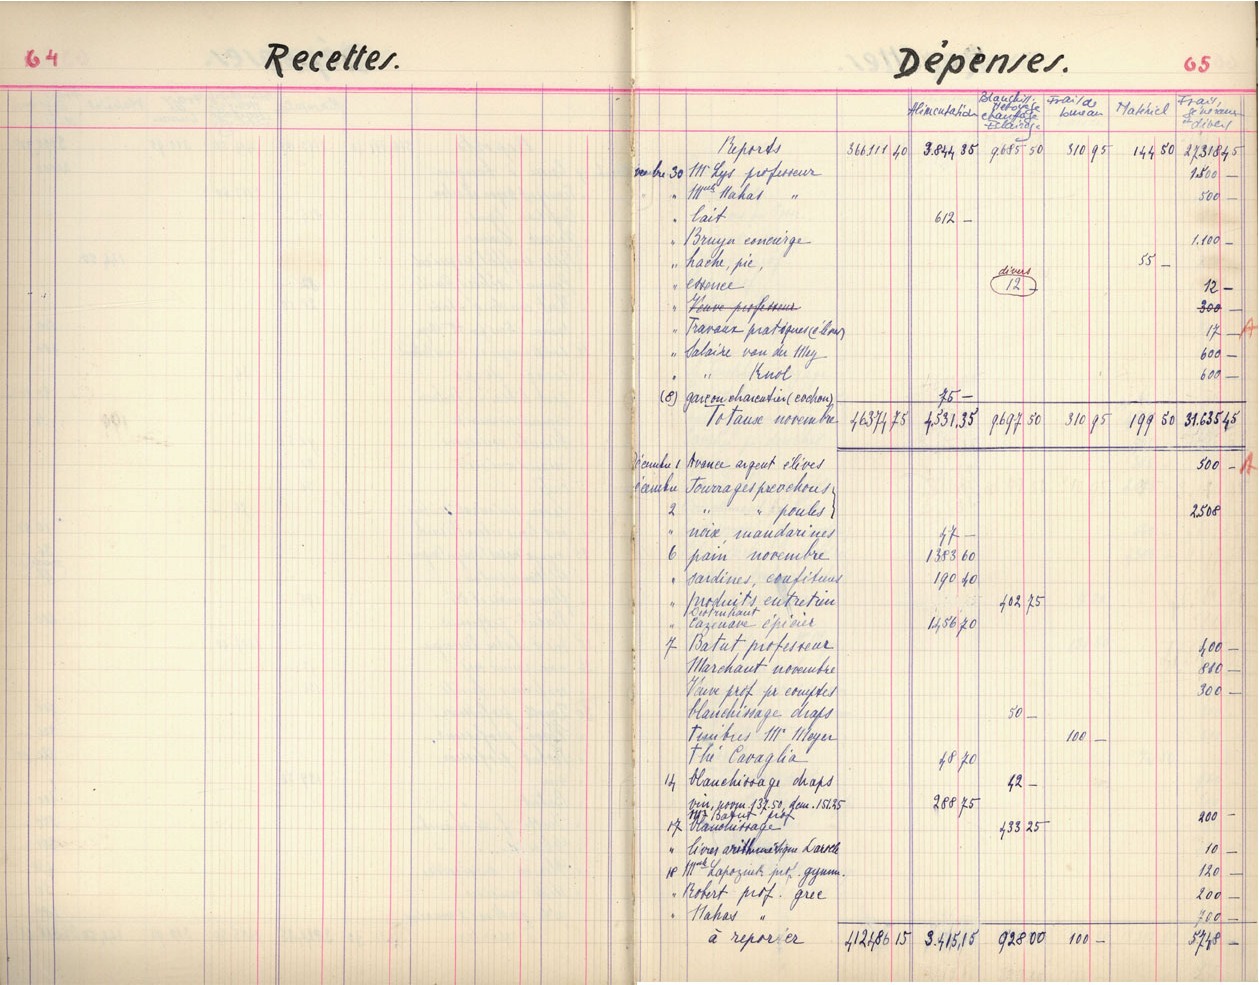 64
Recettes.
Dépenses.
65
Alimentation
Blanchiss. Nettoyage chauffage Eclairage
Frais de bureau
Matériel
Frais généraux et divers
Reports 366.111 40 3.844 35 9.685 50 310 95 144 50 27.318 45
30 Mr Lys professeur 1.500 —
" Nahas " 500 —
" lait 612 —
" Bruyn concierge 1.100 —
" hache, pic, 55 —
divers
" essence 12 — 12 —
" Veuve professeur 300 —
" Travaux pratiques 17 — A
" Salaire van der Mey 600 —
" " Knol 600 —
(8) garçon charcutier (cochon) 75 —
Totaux novembre 46374 75 4.531,35 9.697 50 310 95 199 50 31.635 45
1 Avance argent élèves 500 — A
Fourrages pr cochons
2 " " poules 2508
" noix, mandarines 47 —
6 pain novembre 1383 60
" sardines, confitures 190 40
" produits entretien 402 75
" Cazenave épicier 1456 70
7 Batut professeur 400 —
Marchant novembre 810 —
Veuve prof pr comptes 300 —
blanchissage draps 50 —
timbres Mr Meyer 100 —
thé Cavaglia 48 70
14 blanchissage draps 42 —
vin, novm. 137.50, dem. 151.25 288 75
Batut prof 200 —
17 blanchissage 433 25
" livres arithmétique 10 —
18 prof. gymn. 120 —
" Robert prof. grec 200 —
" Nahas " 700 —
à reporter 412486 15 3.415,15 928 00 100 — 5748 —